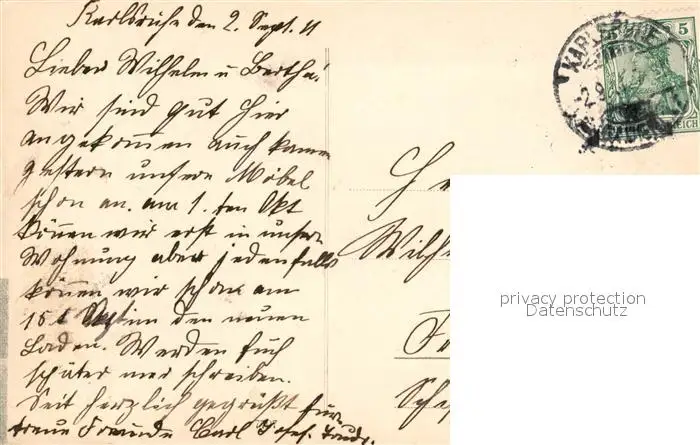 Karlsruhe den 2. Sept. 11
Lieber Wilhelm u Bertha.
Wir sind gut hier
angekommen auch kamen
gestern unsere Möbel
schon an. am 1. ten Okt
können wir erst in unsere
Wohnung aber jedenfalls
können wir schon am
15t in den neuen
Laden. Werden Euch
später mer schreiben.
Seit herzlich gegrüßt Eure
treue Freunde Carl Josef.
KARLSRUHE
5
REICH
Wilh
privacy protection
Datenschutz